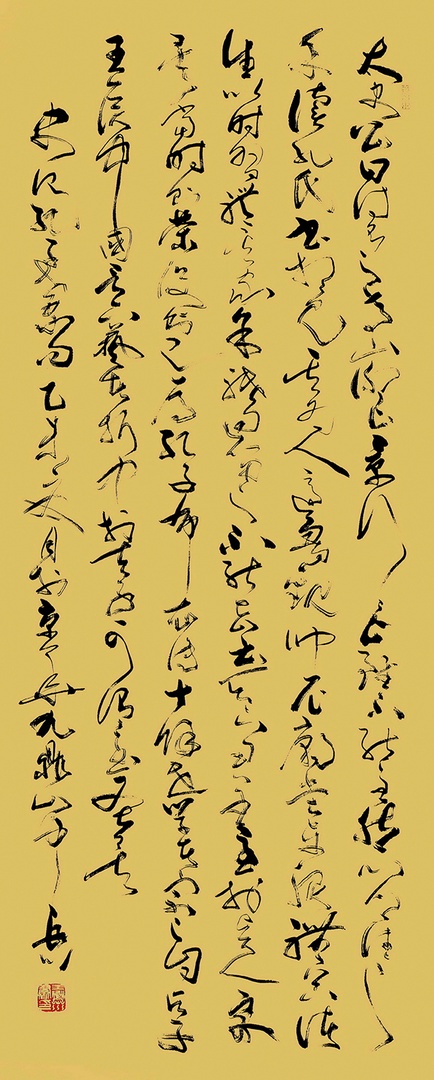 太史公曰詩有之高山仰止景行行止雖不能至然心嚮往之
余讀孔氏書想見其爲人適魯觀仲尼廟堂車服禮器諸
生以時習禮其家余祗回留之不能去云天下君王至於賢人衆
矣當時則榮沒則已焉孔子布衣傳十餘世學者宗之自天子
王侯中國言六藝者折中於夫子可謂至聖矣
史記孔子世家句乙未夏月於京華九鼎山 岳川